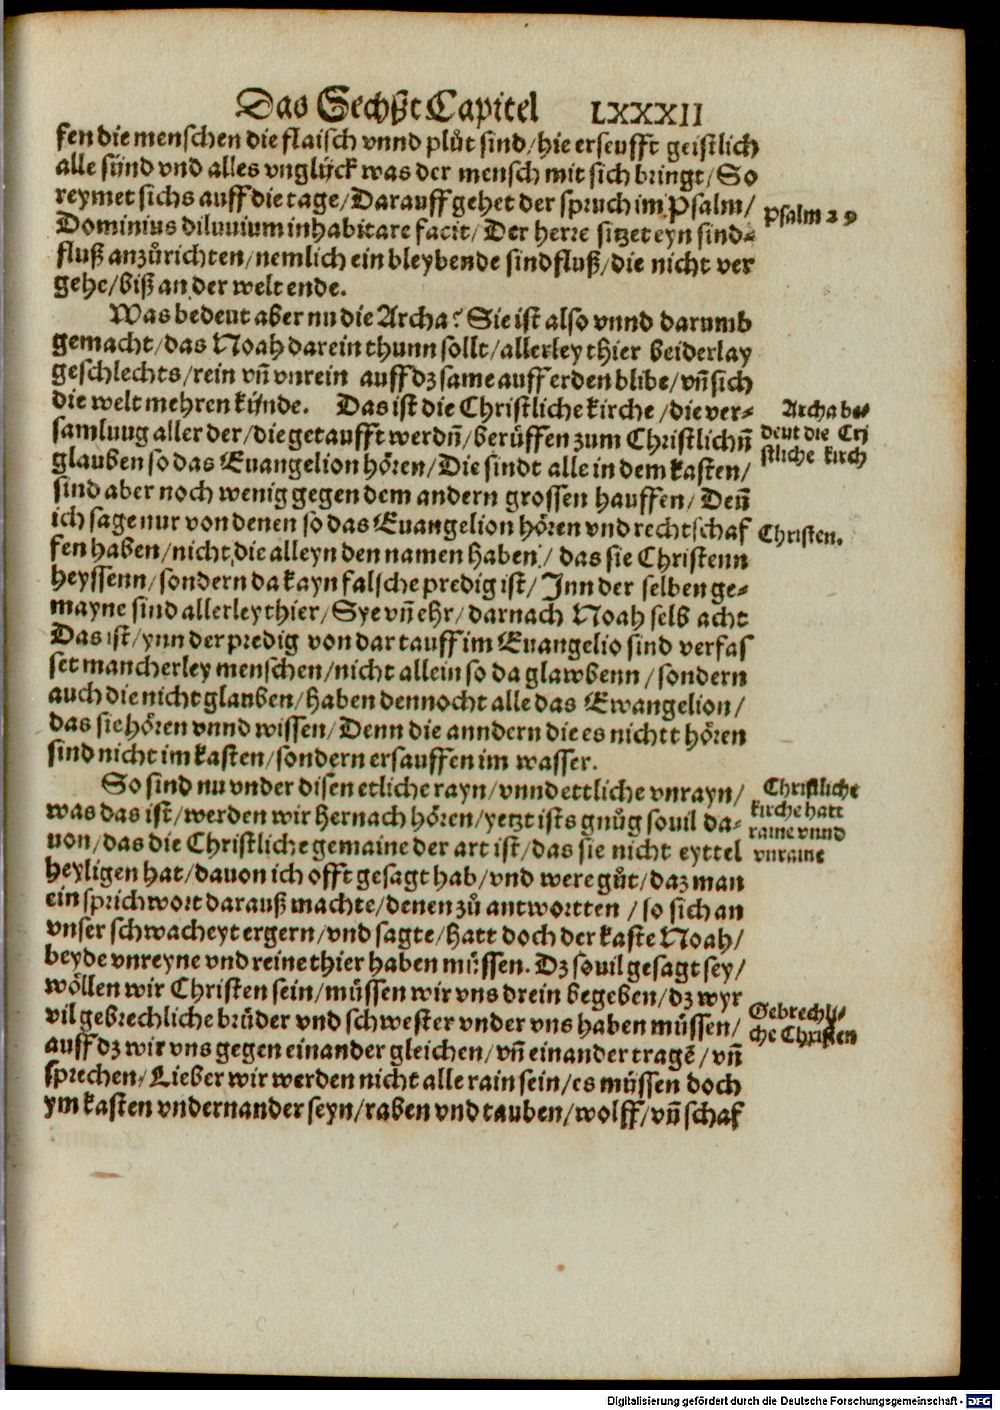 Das Sechßt Capitel LXXXII
fen die menschen die flaisch vnnd plůt sind/hie erseufft geistlich
alle sünd vnd alles vnglück was der mensch mit sich bringt/So
reymet sichs auff die tage/Darauff gehet der spruch im Psalm/
Psalm 29
Dominius diluuium inhabitare facit/Der herre sitzet eyn sind⸗
fluß anzůrichten/nemlich ein bleybende sindfluß/die nicht ver
gehe/biß an der welt ende.
Was bedeut aber nu die Archa? Sie ist also vnnd darumb
gemacht/das Noah darein thunn sollt/allerley thier beiderlay
geschlechts/rein vñ vnrein auff dz same auff erden blibe/vñ sich
die welt mehren künde. Das ist die Christliche kirche/die ver⸗
Archa be⸗
samlung aller der/die getaufft werdñ/berüffen zum Christlichñ
deut die Cri
glauben so das Euangelion hören/Die sindt alle in dem kasten/
stliche kirch
sind aber noch wenig gegen dem andern grossen hauffen/Deñ
ich sage nur von denen so das Euangelion hören vnd rechtschaf
Christen.
fen haben/nicht die alleyn den namen haben/das sie Christenn
heyssenn/sondern da kayn falsche predig ist/Inn der selben ge⸗
mayne sind allerley thier/Sye vñ ehr/darnach Noah selb acht
Das ist/ynn der predig von dar tauff im Euangelio sind verfas
set mancherley menschen/nicht allein so da glawbenn/sondern
auch die nicht glauben/haben dennocht alle das Ewangelion/
das sie hören vnnd wissen/Denn die anndern die es nichtt hören
sind nicht im kasten/sondern ersauffen im wasser.
So sind nu vnder disen etliche rayn/vnnd ettliche vnrayn/
Christliche
was das ist/werden wir hernach hören/yetzt ists gnůg souil da⸗
kirche hatt
raine vnnd
uon/das die Christliche gemaine der art ist/das sie nicht eyttel
vnraine
heyligen hat/dauon ich offt gesagt hab/vnd were gůt/daz man
ein sprichwort darauß machte/denen zů antwortten/so sich an
vnser schwacheyt ergern/vnd sagte/hatt doch der kaste Noah/
beyde vnreyne vnd reine thier haben müssen. Dz souil gesagt sey/
wöllen wir Christen sein/müssen wir vns drein begeben/dz wyr
Gebrechli⸗
vil gebrechliche brüder vnd schwester vnder vns haben müssen/
che Christen
auff dz wir vns gegen einander gleichen/vñ einander tragē/vñ
sprechen/Lieber wir werden nicht alle rain sein/es müssen doch
ym kasten vndernander seyn/raben vnd tauben/wolff/vñ schaf
Digitalisierung gefördert durch die Deutsche Forschungsgemeinschaft - DFG